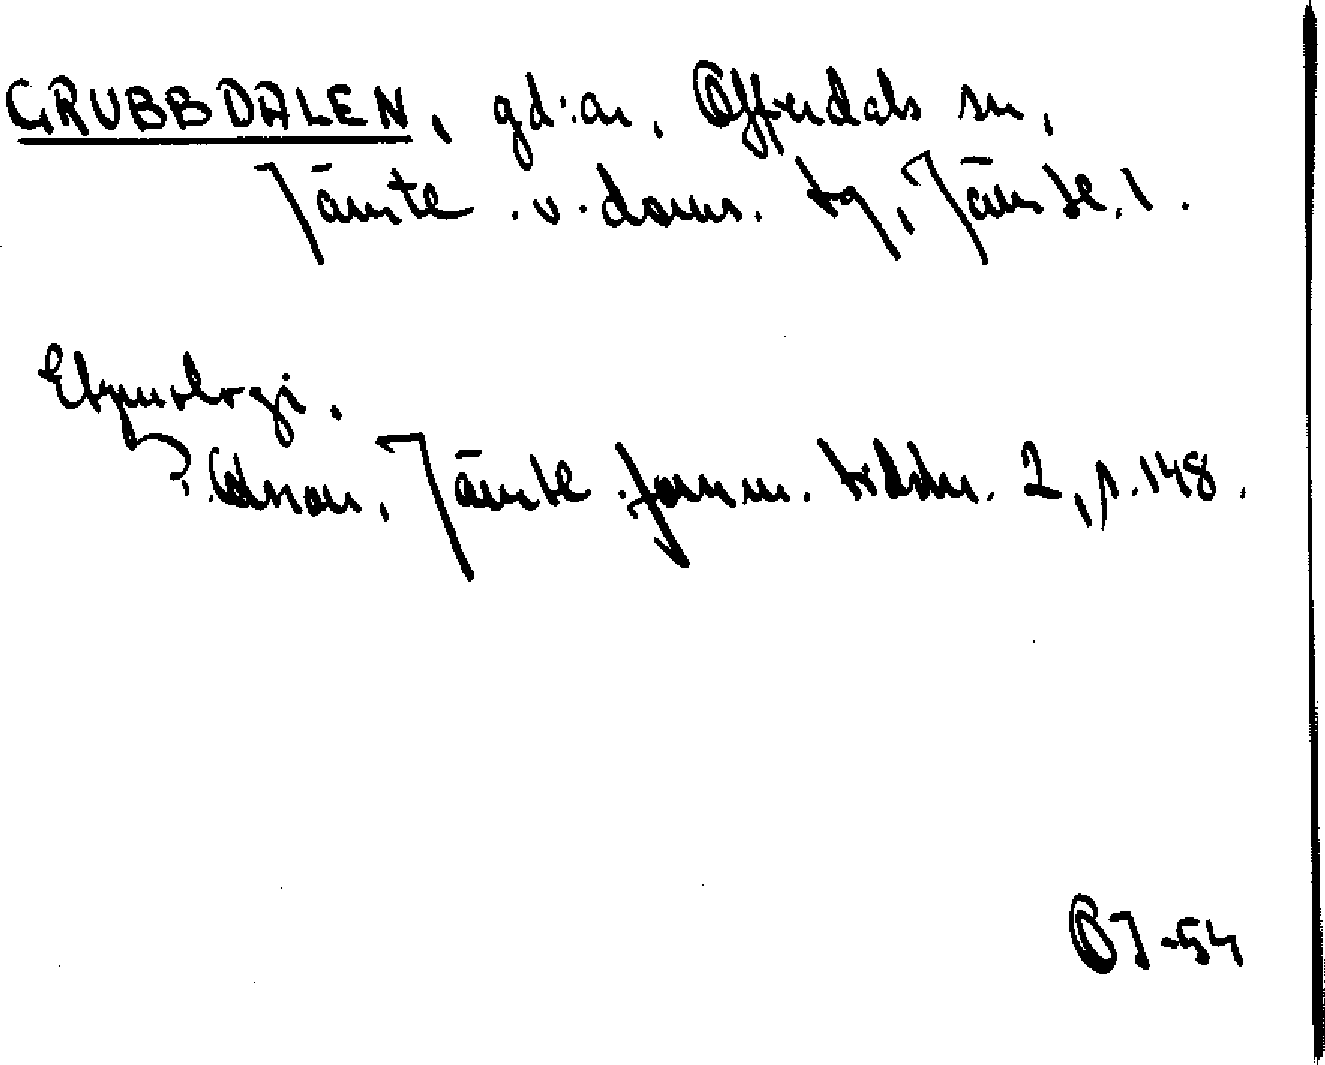 GRUBBDALEN, gd:ar, Offerdals sn,
Jämte. v. doms. tg, Jämtl. l.
Etymologi.
Jämtl. fornm. tidskr. 2, p. 148.
OJ-54